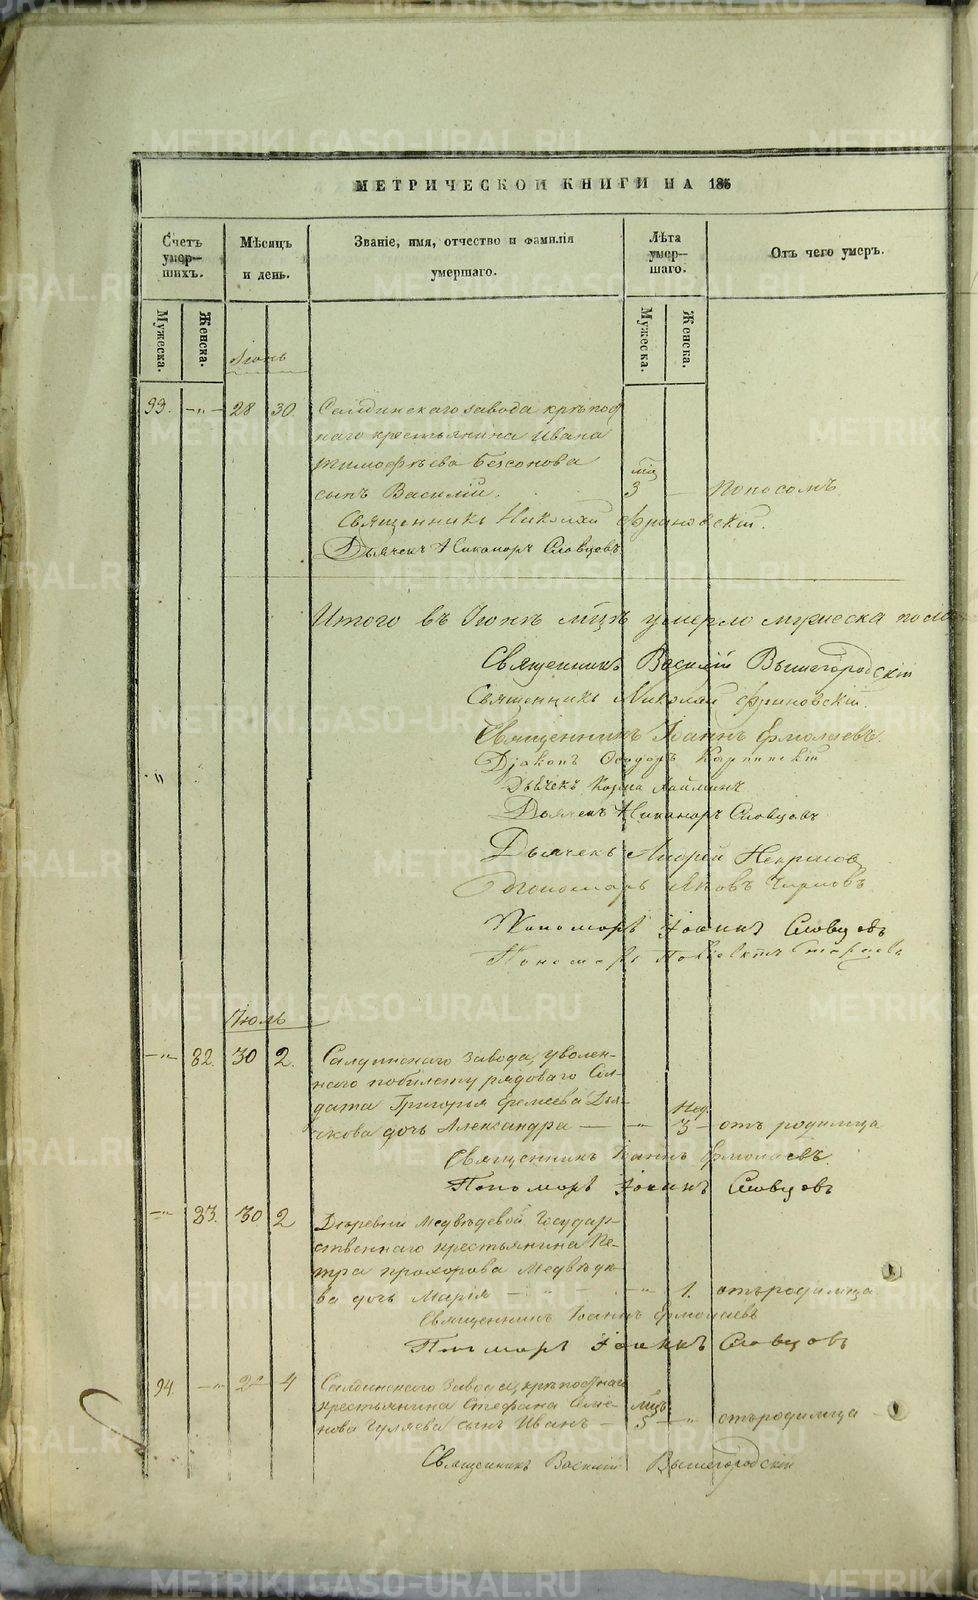 МЕТРИЧЕСКОЙ КНИГИ НА 185
Счетъ умер-шихъ.
Мѣсяцъ и день.
Званіе, имя, отчество и фамилія умершаго.
Лѣта умер-шаго.
Отъ чего умеръ.
Мужеска.
Женска.
Мужеска.
Женска.
Іюнь
93. — „ — 28 30. Салдинскаго завода крѣпост
наго крестьянина Ивана
Тимофѣева Безсонова
сынъ Василій. мц 3 — Поносомъ
Священникъ Николай Фриновскій.
Дьячекъ Никаноръ Словцовъ
Итого въ Іюнѣ мцѣ умерло мужеска пола
Священникъ Василій Вышегородскій
Священникъ Николай Фриновскій.
Священникъ Іоаннъ Ермолаевъ.
Діаконъ Феодоръ Карпинскій
Дьячекъ Козма
Дьячекъ Никаноръ Словцовъ
Дьячекъ Андрей Некрасов
Пономарь Яковъ Чирковъ
Пономарь Іоаннъ Словцовъ
Пономарь
Іюль
— „ 82. 30 2. Салдинскаго завода, уволен-
наго по билету рядоваго Сол-
дата Григорья Еремеева Дья-
чкова дочь Александра — — „ — Нед. 3 — отъ родимца
Священникъ Іоаннъ Ермолаевъ.
Пономарь Іоаннъ Словцовъ
— „ 83. 30 2 Деревни Медвѣдевой Государ-
ственнаго крестьянина Пе-
тра Прохорова Медвѣде-
ва дочь Марія — „ — „ 1. отъ родимца
Священникъ Іоаннъ Ермолаевъ
Пономарь Іоаннъ Словцовъ
94. — „ 2 4 Салдинскаго завода крѣпостнаго
крестьянина Стефана Семе-
нова Гуляева сынъ Иванъ — мцъ 5 — „ отъ родимца
Священникъ Василій Вышегородскій
METRIKI.GASO-URAL.RU